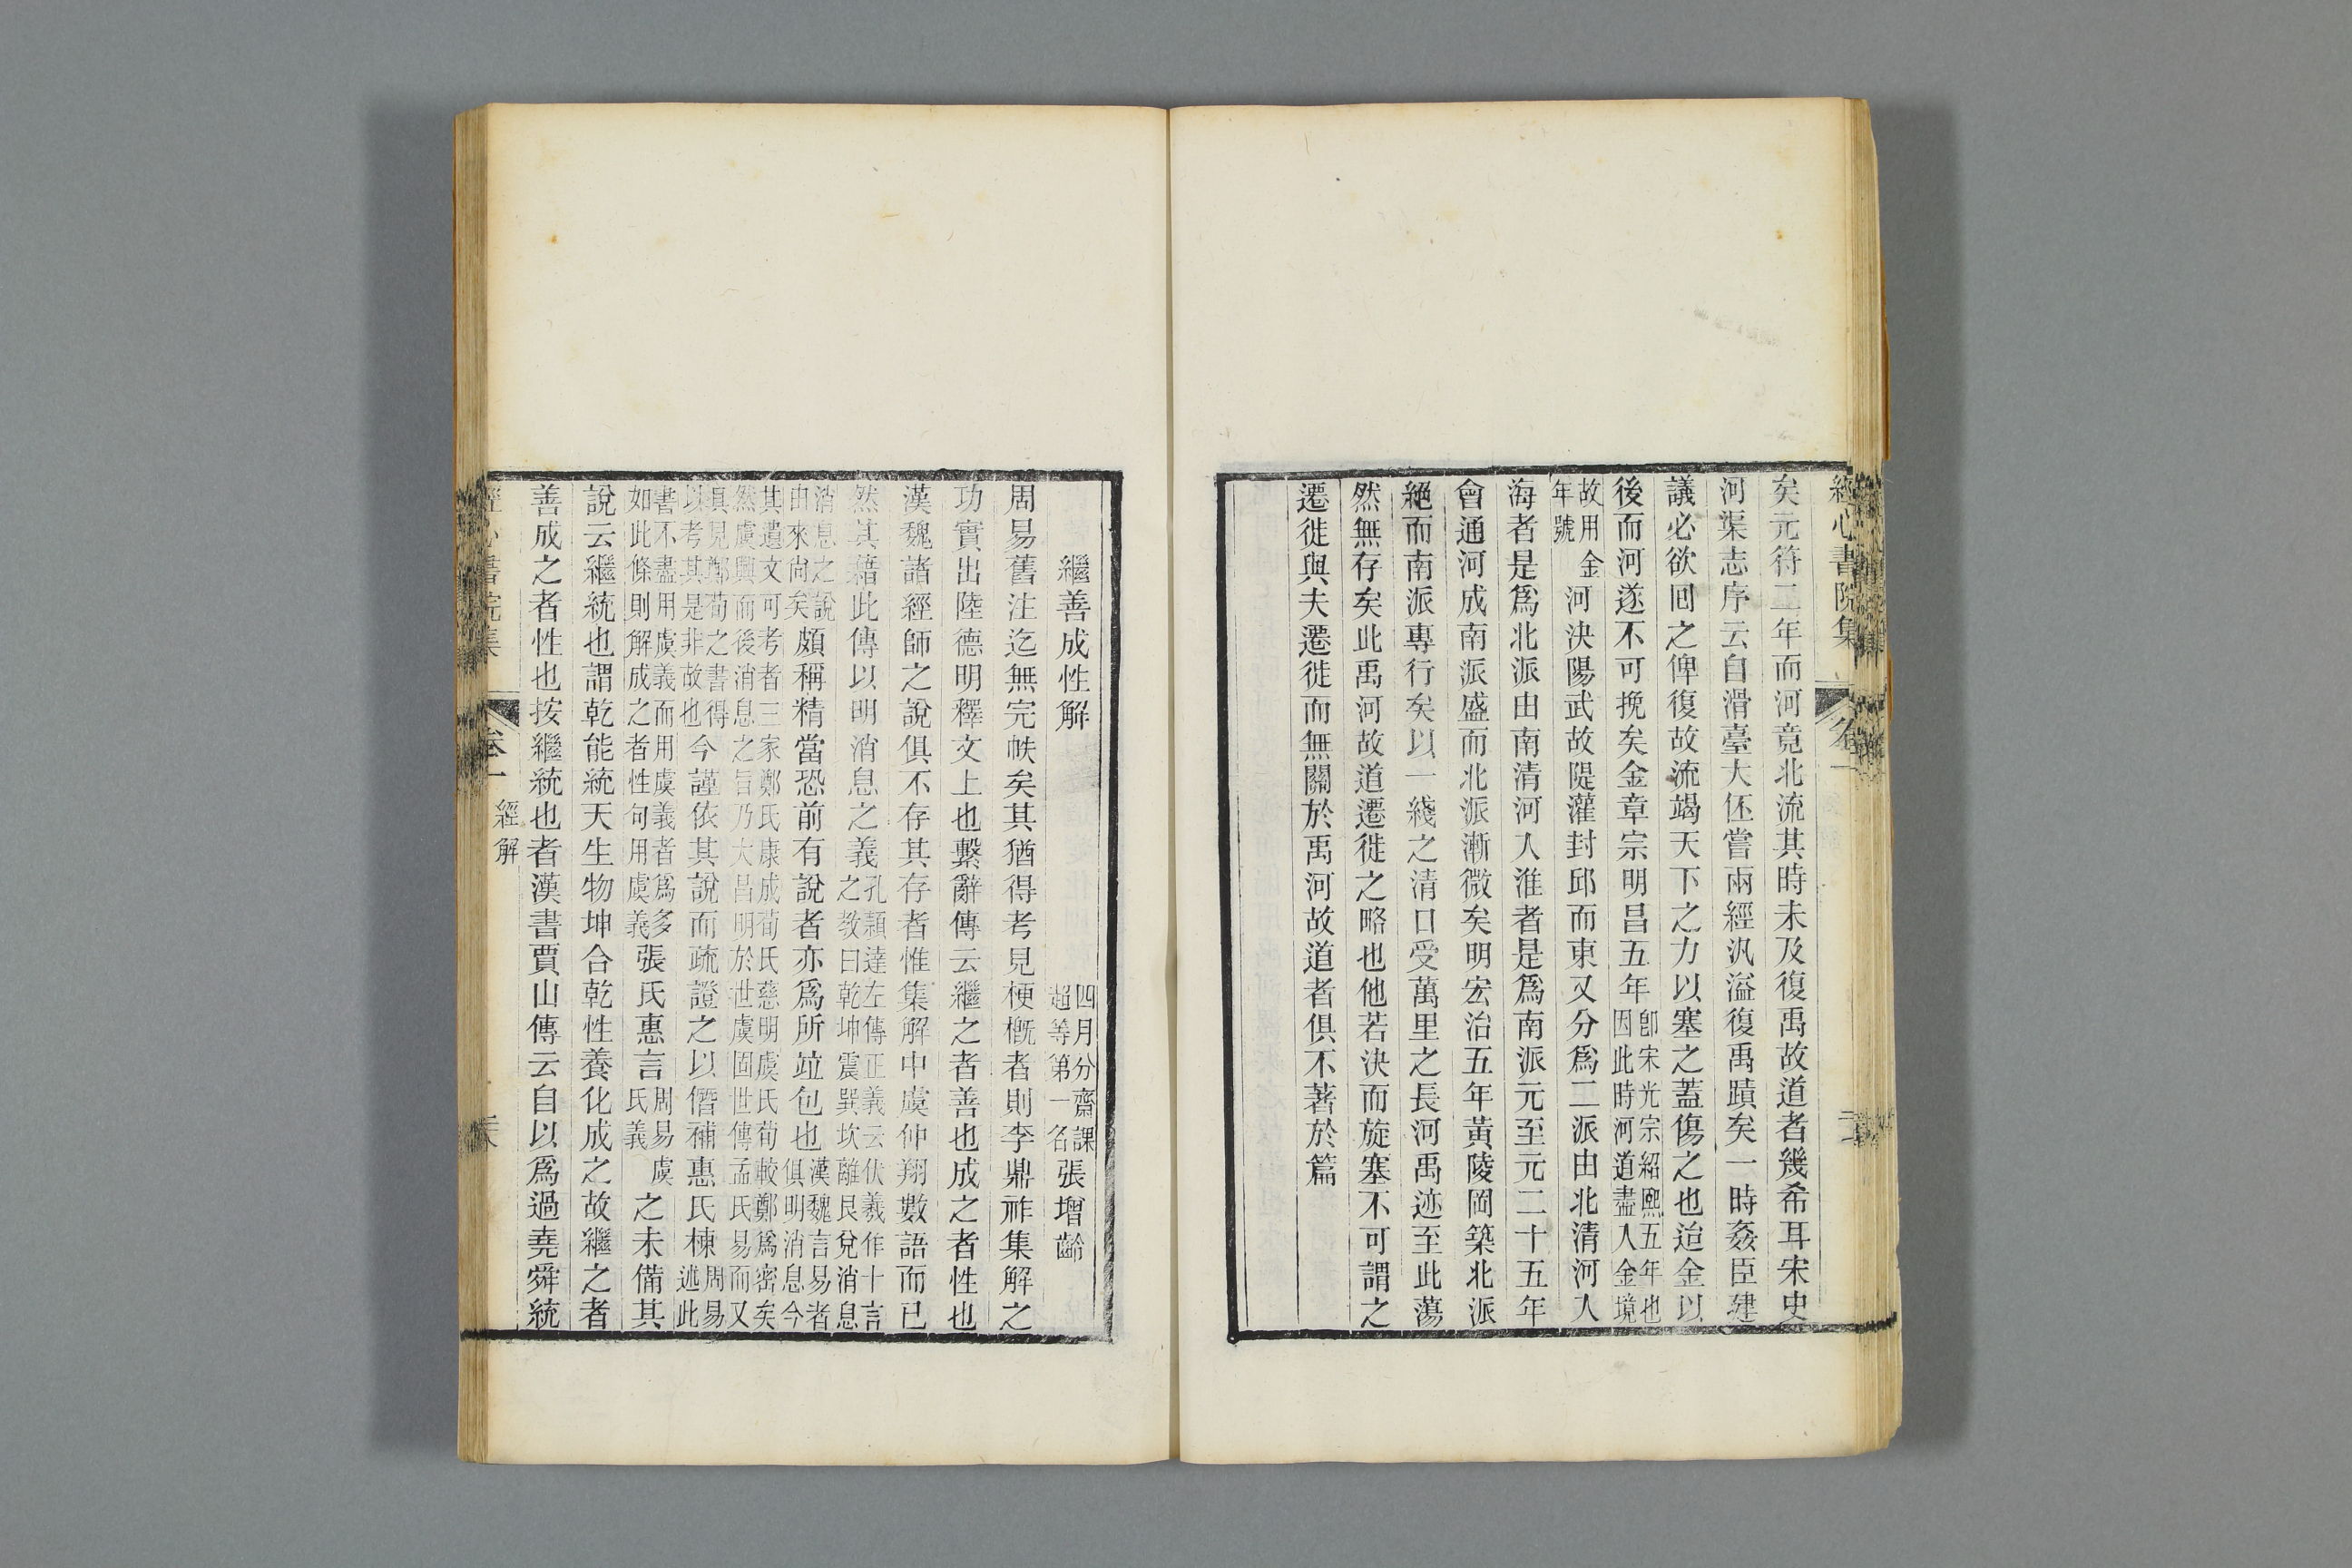 經心書院集
卷一
矣元符二年而河竟北流其時未及復禹故道者幾希耳宋史
河渠志序云自滑臺大伾嘗兩經汎溢復禹蹟矣一時姦臣建
議必欲回之俾復故流竭天下之力以塞之蓋傷之也迨金以
後而河遂不可挽矣金章宗明昌五年卽宋光宗紹熙五年也因此時河道盡入金境
故用金年號河決陽武故隄灌封邱而東又分爲二派由北清河入
海者是爲北派由南清河入淮者是爲南派元至元二十五年
會通河成南派盛而北派漸微矣明宏治五年黃陵岡築北派
絕而南派專行矣以一綫之清口受萬里之長河禹迹至此蕩
然無存矣此禹河故道遷徙之略也他若決而旋塞不可謂之
遷徙與夫遷徙而無關於禹河故道者俱不著於篇
繼善成性解
四月分齋課超等第一名張增齡
周易舊注迄無完帙矣其猶得考見梗概者則李鼎祚集解之
功實出陸德明釋文上也繫辭傳云繼之者善也成之者性也
漢魏諸經師之說俱不存其存者惟集解中虞仲翔數語而已
然其藉此傳以明消息之義孔穎達左傳正義云伏羲作十言之教曰乾坤震巽坎離艮兌消息
消息之說由來尚矣頗稱精當恐前有說者亦爲所竝包也漢魏言易者俱明消息今
其遺文可考者三家鄭氏康成荀氏慈明虞氏荀較鄭爲密矣然虞興而後消息之旨乃大昌明於世虞固世傳孟氏易而又
眞見鄭荀之書得以考其是非故也今謹依其說而疏證之以僭補惠氏棟周易述此
書不盡用虞義而用虞義者爲多如此條則解成之者性句用虞義張氏惠言周易虞氏義之未備其
說云繼統也謂乾能統天生物坤合乾性養化成之故繼之者
善成之者性也按繼統也者漢書賈山傳云自以爲過堯舜統
經心書院集
卷一
經解